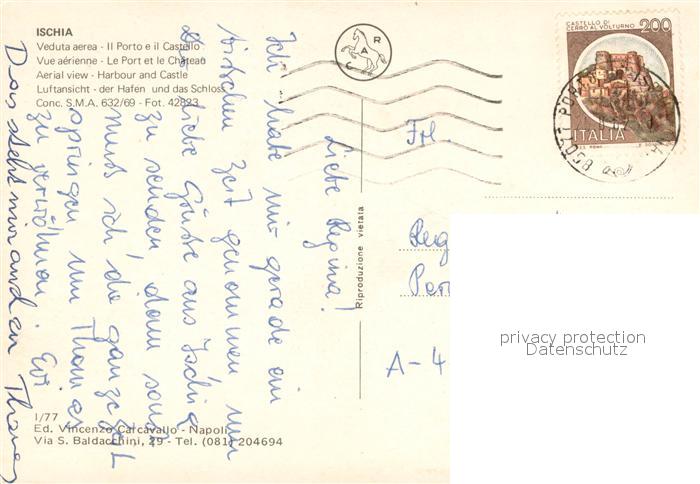 ISCHIA
Veduta aerea - Il Porto e il Castello
Vue aérienne - Le Port et le Château
Aerial view - Harbour and Castle
Luftansicht - der Hafen und das Schloss
Conc. S.M.A. 632/69 - Fot. 42823
CASTELLO DI
CERRO AL VOLTURNO
200
ITALIA
80077 PORT
Liebe Regina!
Ich habe mir gerade ein
bisschen Zeit genommen um
Dir liebe Grüsse aus Ischia
zu senden, denn sonst
muss ich die ganze Zeit
springen um Thomas
zu verwöhnen Evi
Das steht mir auch zu Thomas
Frl.
Reg
Per
A-4
Riproduzione vietata
privacy protection
Datenschutz
I/77
Ed. Vincenzo Carcavallo - Napoli
Via S. Baldacchini, 29 - Tel. (081) 204694